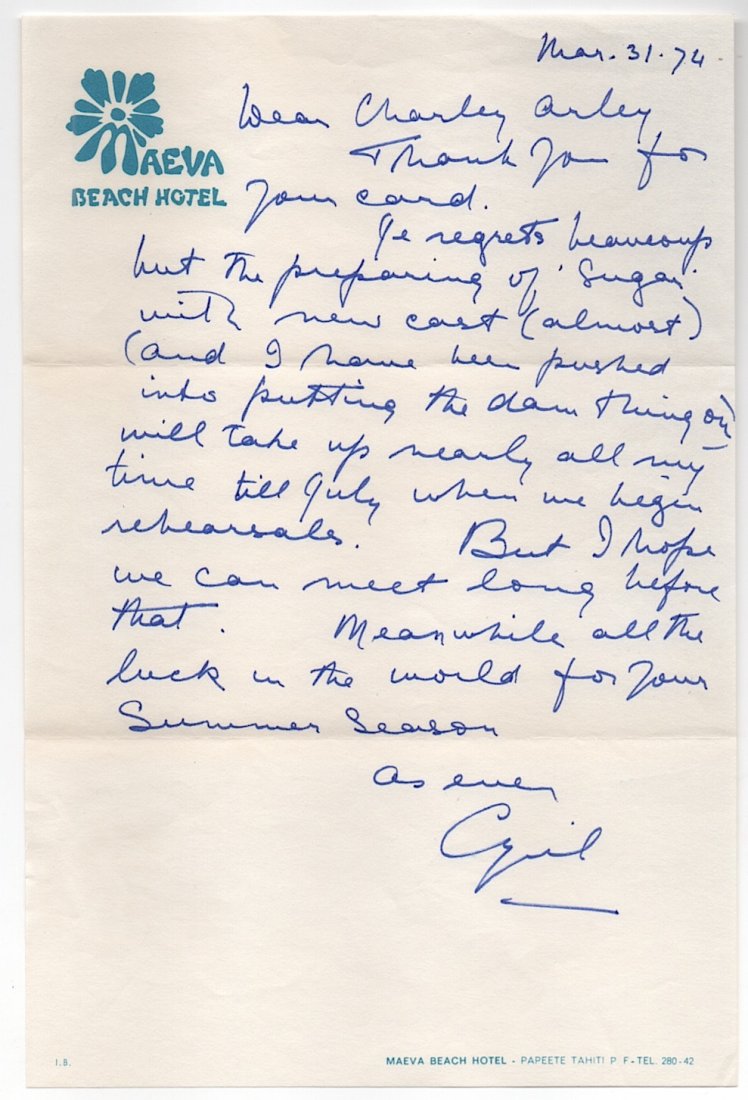 Mar. 31. 74
MAEVA
BEACH HOTEL
Dear Charley Arley
Thank you for
your card.
Je regrets beaucoup
but the preparing of 'Sugar'
with new cast (almost)
(and I have been pushed
into putting the dam thing on)
will take up nearly all my
time till July when we begin
rehearsals. But I hope
we can meet long before
that. Meanwhile all the
luck in the world for your
Summer Season
As ever
Cyril
I.B.
MAEVA BEACH HOTEL - PAPEETE TAHITI P. F - TEL. 280-42